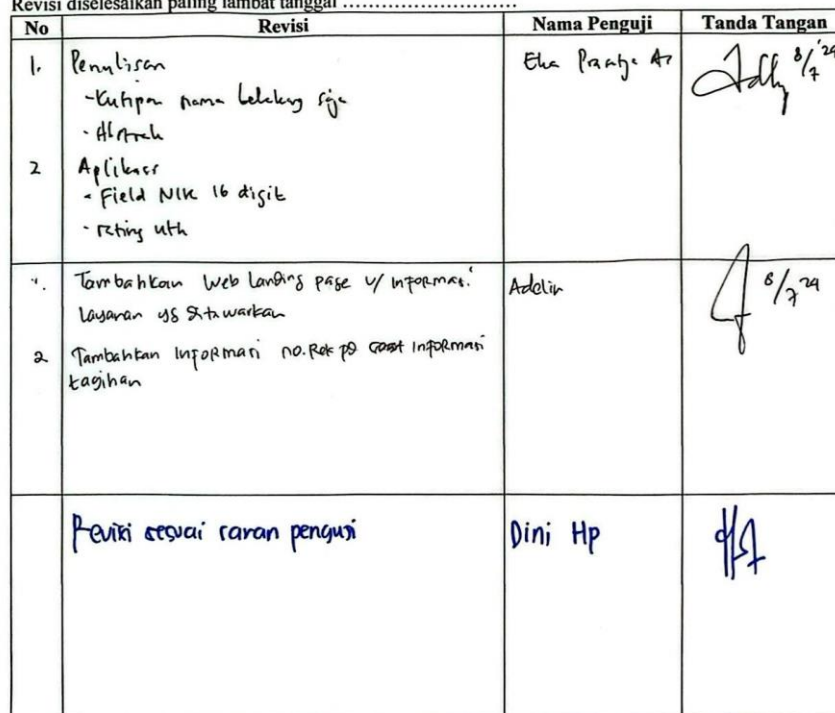 Revisi diselesaikan paling lambat tanggal ............................
No Revisi Nama Penguji Tanda Tangan
1. Penulisan Eka
- Kutipan nama belakang saja
- Abstrak
2 Aplikasi
- Field NIK 16 digit
- rating
8/7 '24
1. Tambahkan Web Landing page u/ informasi Adelin
layanan yg ditawarkan
8/7 24
2 Tambahkan Informasi no. Rek pd informasi
tagihan
Revisi sesuai saran penguji Dini Hp